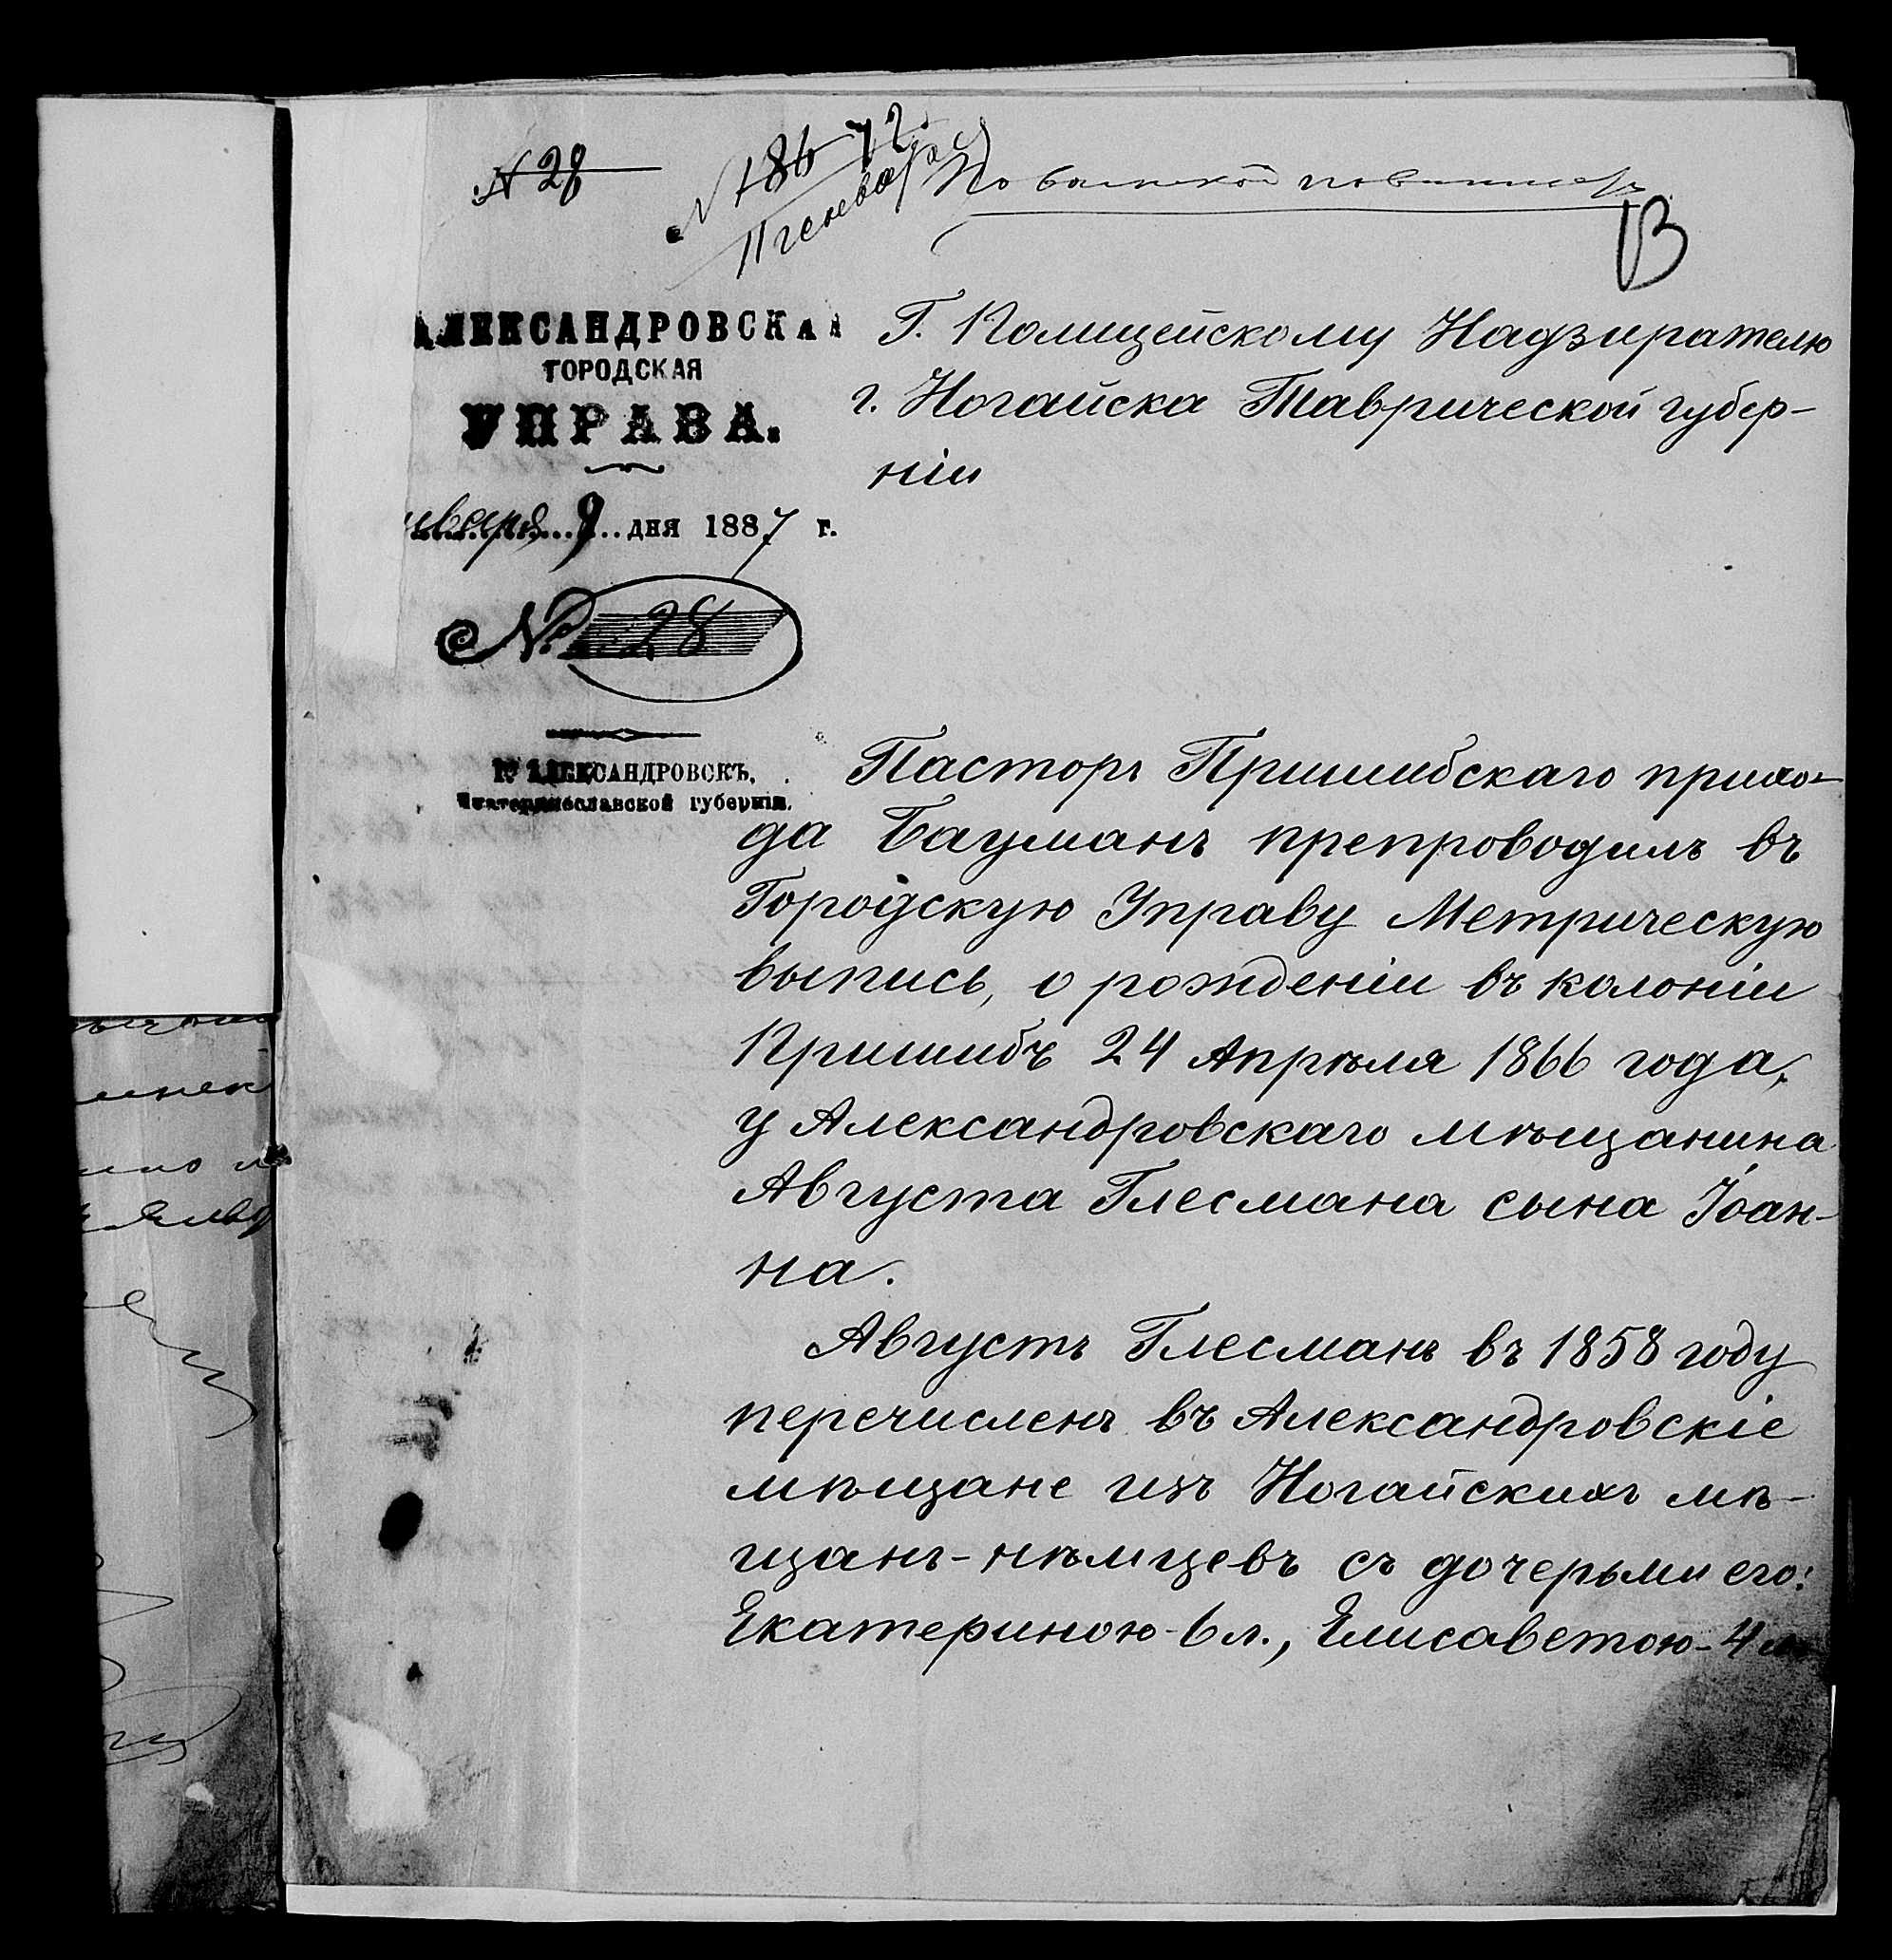 № 28
№ 186
11 генваря
По воинской повинности
13
АЛЕКСАНДРОВСКАЯ
ГОРОДСКАЯ
УПРАВА.
нваря 9 дня 1887 г.
№ 28
Г. АЛЕКСАНДРОВСКЪ,
Екатеринославской губернія.
Г. Полицейскому Надзирателю
г. Ногайска Таврической губер-
ніи
Пасторъ Пришибскаго прихо-
да Бауманъ препроводилъ въ
Городскую Управу Метрическую
выпись, о рожденіи въ колоніи
Пришибъ 24 Апрѣля 1866 года,
у Александровскаго мѣщанина
Августа Глесмана сына Іоан-
на.
Августъ Глесманъ въ 1858 году
перечисленъ въ Александровскіе
мѣщане изъ Ногайскихъ мѣ-
щанъ-нѣмцевъ съ дочерьми его:
Екатериною-6 л., Елисаветою-4 л.